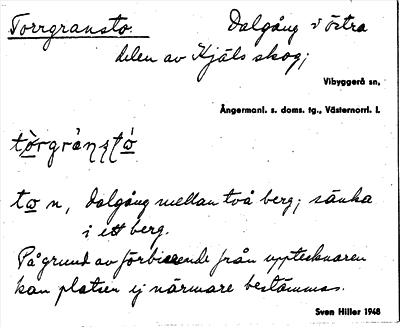 Torrgransto. Dalgång i östra
delen av Kjäls skog;
Vibyggerå sn,
Ångermanl. s. doms. tg., Västernorrl. l.
tòrgránstó
to n, dalgång mellan två berg; sänka
i ett berg.
På grund av förbiseende från upptecknaren
kan platsen ej närmare bestämmas.
Sven Hiller 1948